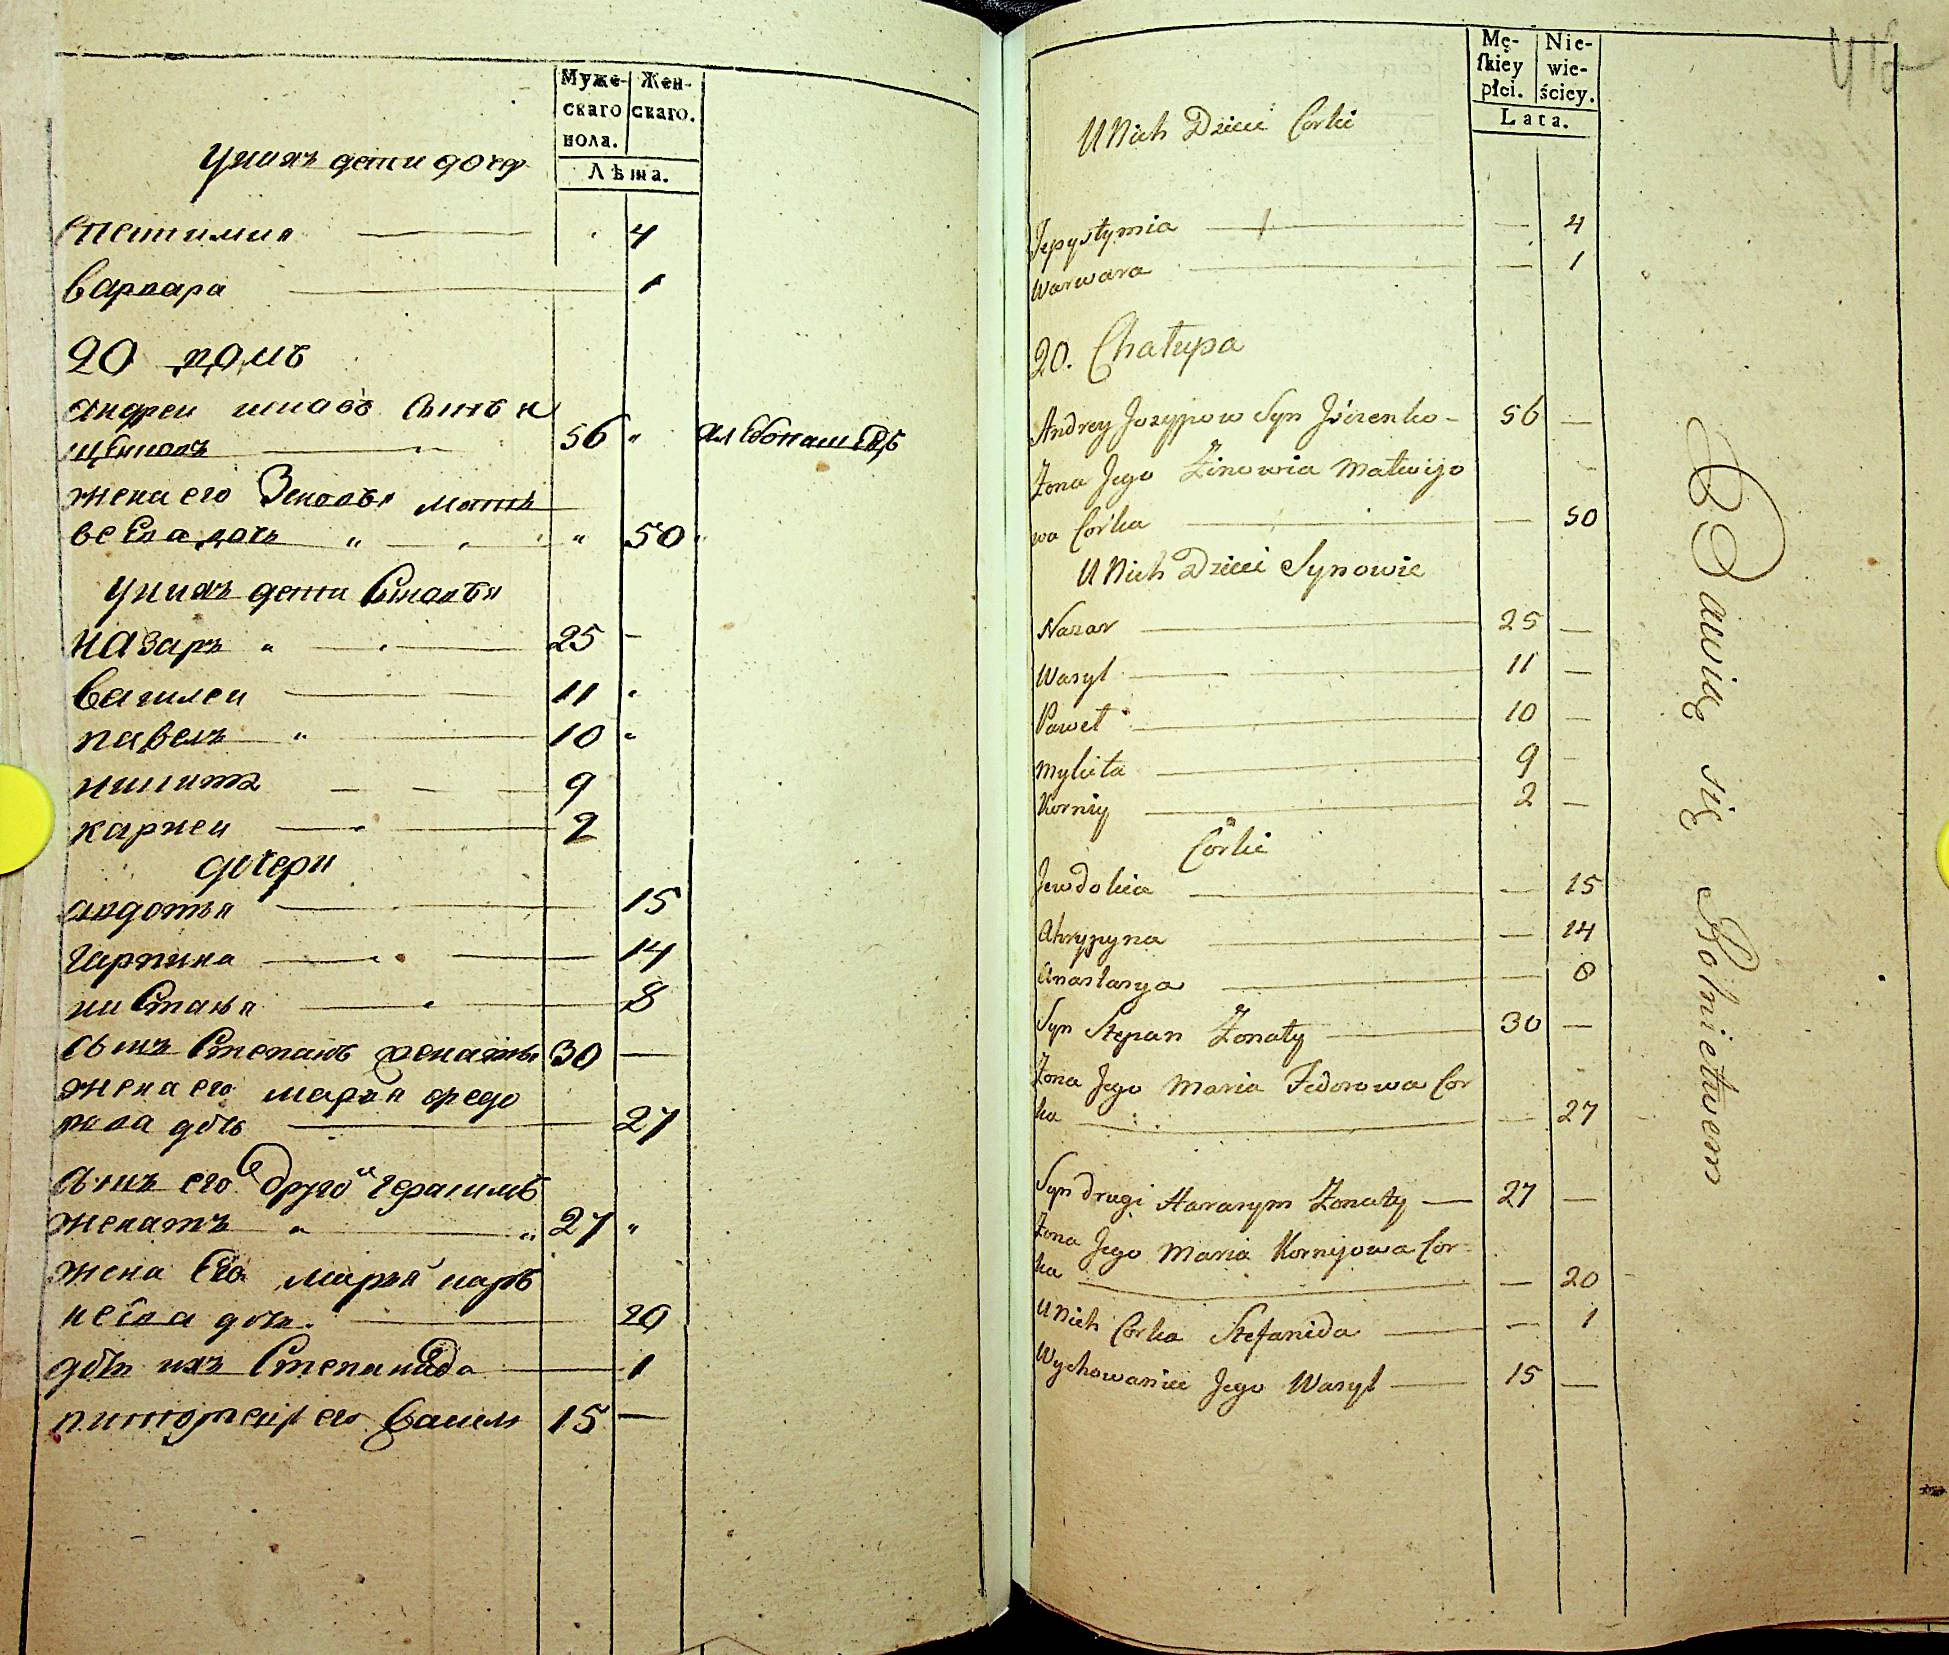 Муже-
скаго
пола.
Жен-
скаго.
Лѣта.
Унихъ дети дочер
епистимия 4
варвара 1
20 домъ
андреи
56
жена его Зеновья матъ
веева дочь 50
Унихъ дети Сыновья
назаръ 25
василеи 11
павелъ 10
никита 9
карнеи 2
дочери
авдотья 15
гарпина 14
настасья 8
сынъ Степанъ женаты 30
жена его марья федо
рова дочь 27
сынъ его другои герасимъ
женатъ 27
жена Его марья карь
неева дочь 20
дочь ихъ Степанида 1
его Василь 15
Mę-
ſkiey
płci.
Nie-
wie-
ściey.
Lata.
U Nich Dzieci Corki
Jepystymia 4
Warwara 1
20. Chałupa
Andrey Jozypow Syn 56 —
Żona Jego Zinowia Matwijo
wa Corka — 50
U Nich Dzieci Synowie
Nazar 25 —
Wasyl 11 —
Paweł 10 —
Mykita 9 —
Korniy 2 —
Corki
Jewdokia — 15
Ahrypyna — 14
Anastasya — 8
Syn Stepan Żonaty 30 —
Żona Jego Maria Fedorowa Cor
ka — 27
Syn drugi Harasym Żonaty — 27 —
Żona Jego Maria Kornijowa Cor-
ka — 20
U Nich Corka Stefanida — 1
Wychowaniec Jego Wasyl — 15 —
Bawią się Rolnictwem